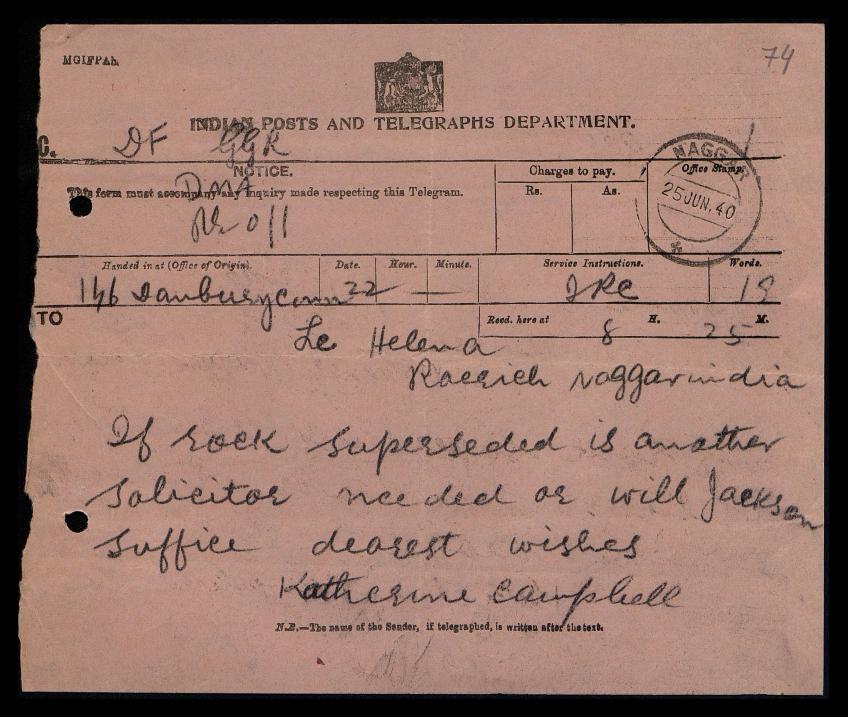 MGIFPAh.
74
INDIAN POSTS AND TELEGRAPHS DEPARTMENT.
C. DF GGR
NOTICE.
This form must accompany any inquiry made respecting this Telegram.
DNA
Charges to pay.
Rs. As.
Office Stamp.
NAGGAR
25 JUN. 40
Handed in at (Office of Origin). Date. Hour. Minute. Service Instructions. Words.
146 Danburyconn 22 — — 19
TO
Recd. here at 8 H. 25 M.
Lc Helena
Roerich Naggarindia
If rock superseded is another
solicitor needed or will Jackson
suffice dearest wishes
Katherine Campbell
N.B.—The name of the Sender, if telegraphed, is written after the text.